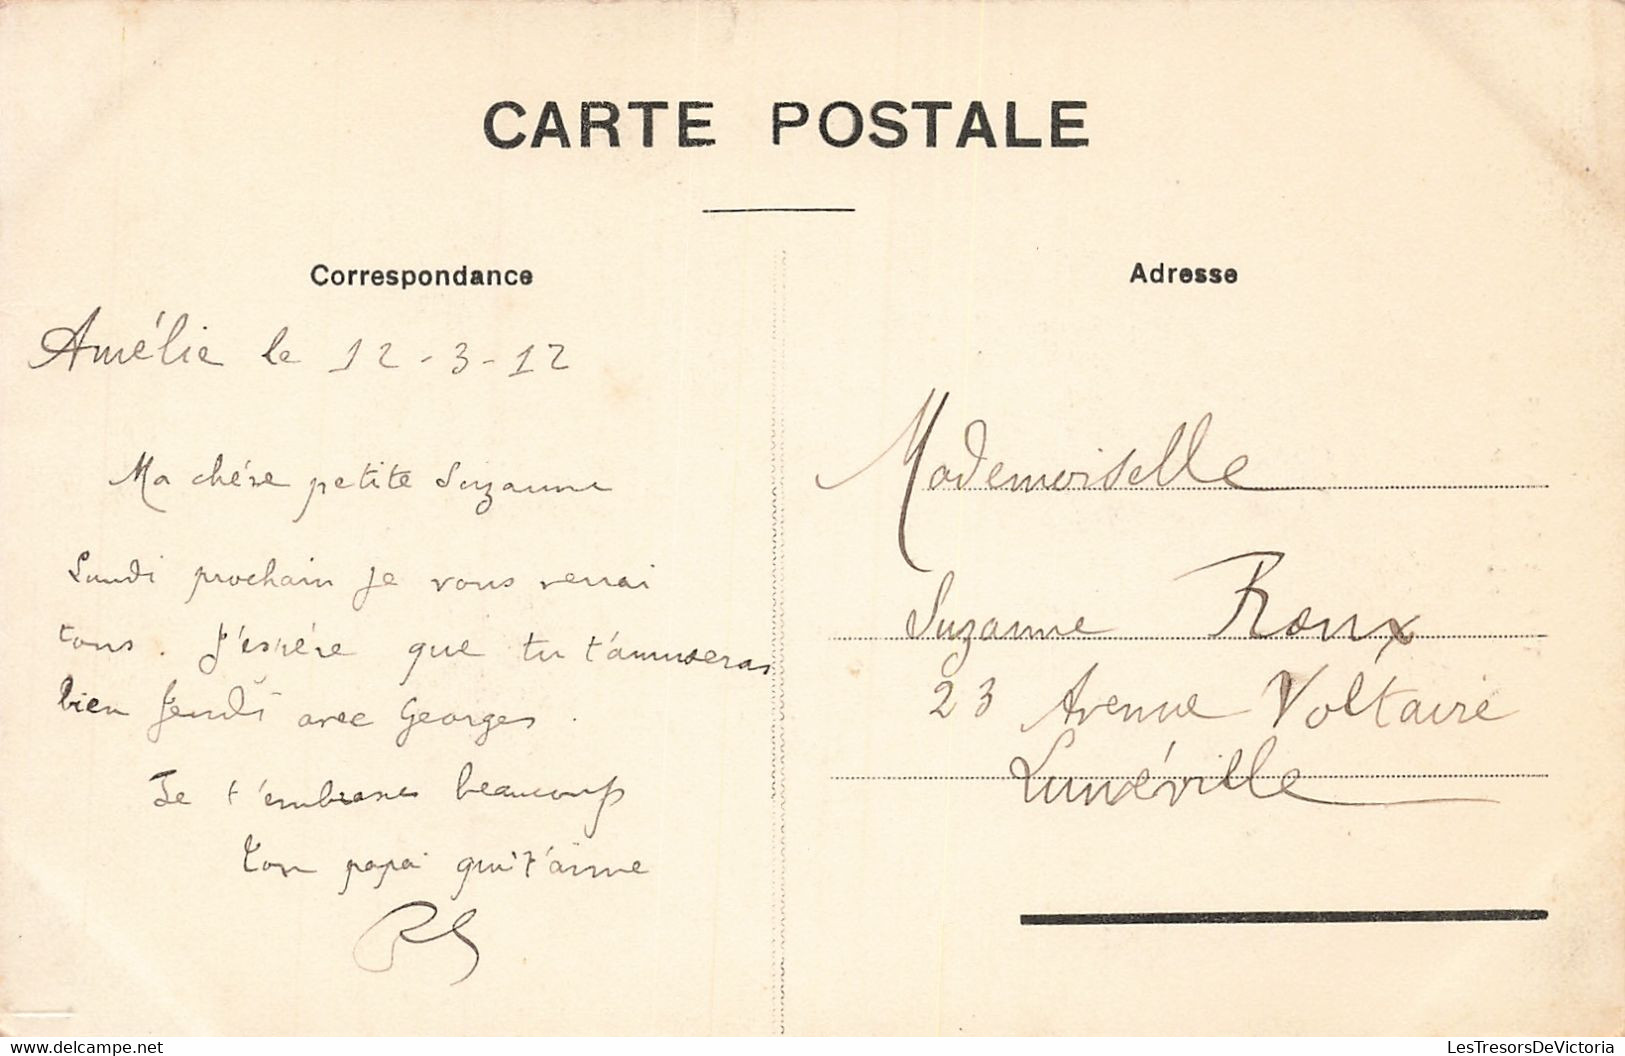 CARTE POSTALE
Correspondance
Amélie le 12-3-12
Ma chére petite Suzanne
Lundi prochain je vous verrai
tous. J'espére que tu t'amuseras
bien Jeudi avec Georges.
Je t'embrasse beaucoup
Ton papa qui t'aime
Adresse
Mademoiselle
Suzanne Roux
23 Avenue Voltaire
Lunéville
LesTresorsDeVictoria Tous droits réservés
delcampe.net